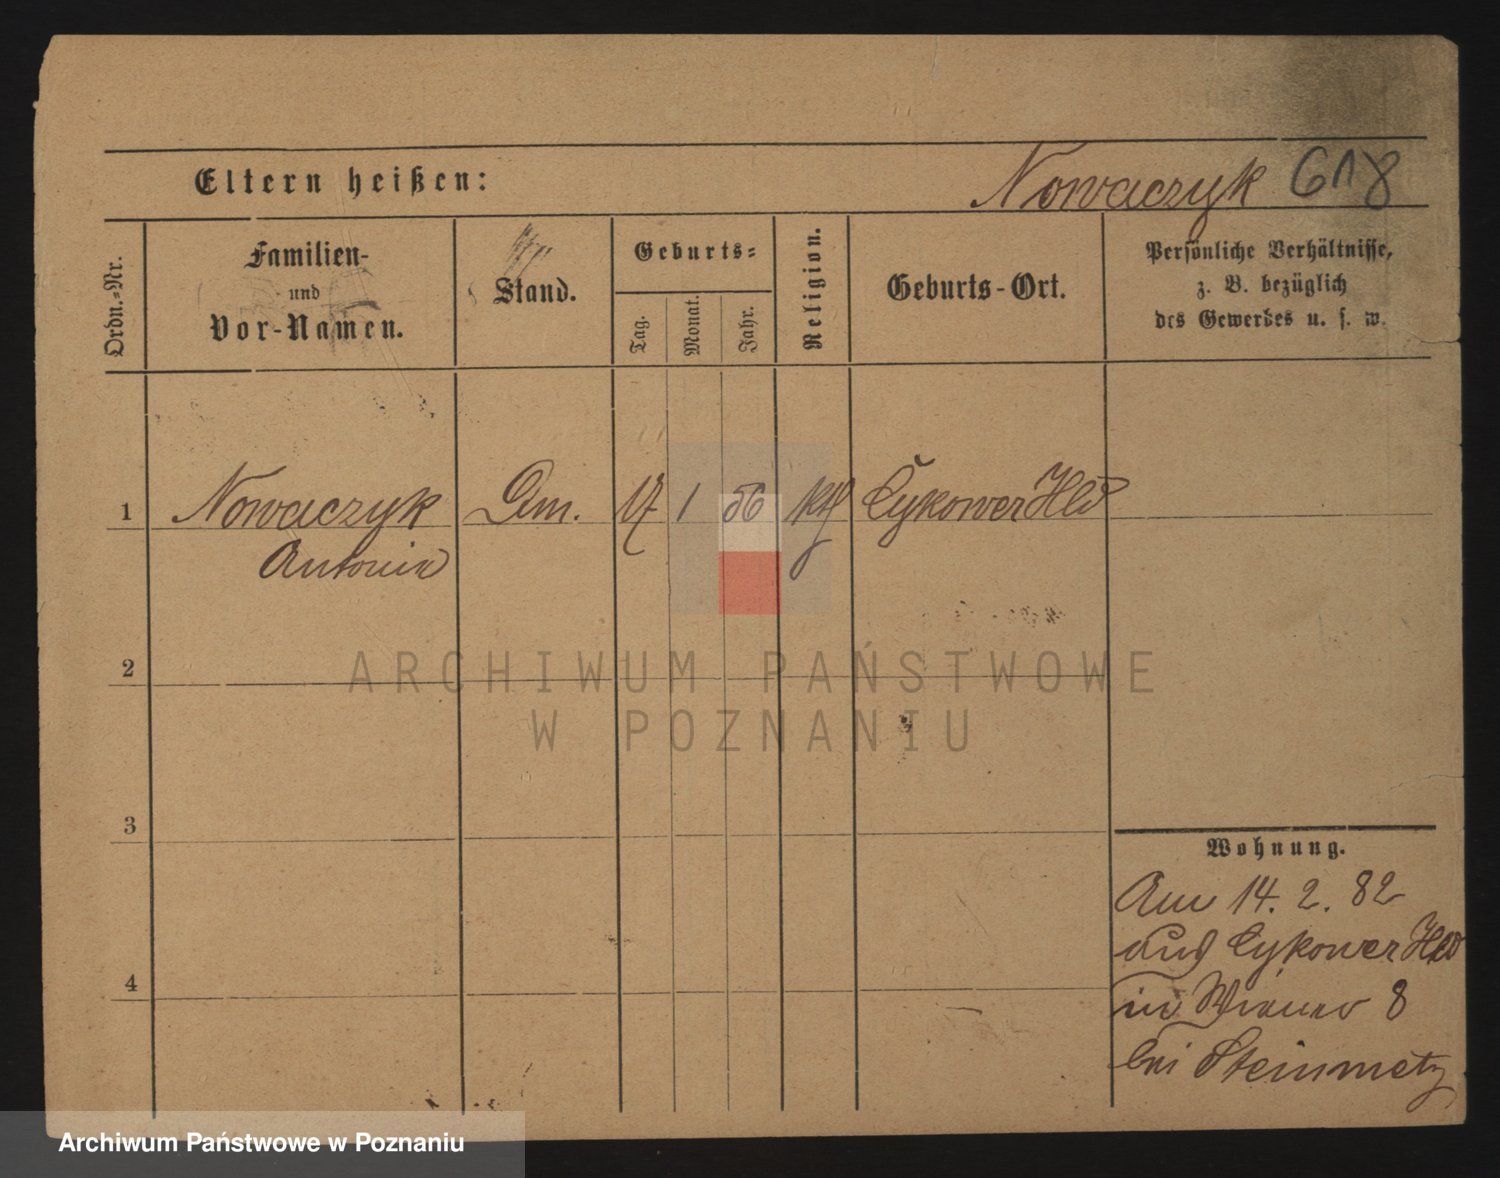 Eltern heißen:
Nowaczyk 618
Ordn.-Nr.
Familien-
und
Vor-Namen.
Stand.
Geburts-
Tag.
Monat.
Jahr.
Religion.
Geburts-Ort.
Persönliche Verhältnisse,
z. B. bezüglich
des Gewerbes u. s. w.
1 Nowaczyk Dm. 17 1 56 kth Cykower Hld
Antonie
2
3
4
Wohnung.
Am 14. 2. 82
aus Cykower Hld
in Wiener 8
bei Steinmetz
ARCHIWUM PAŃSTWOWE
W POZNANIU
Archiwum Państwowe w Poznaniu